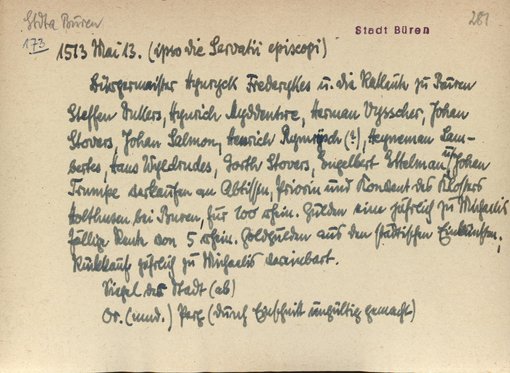 Stdta Büren
173
281
Stadt Büren
1513 Mai 13. (ipso die Servatii episcopi)
Bürgermeister Hynryck Frederykes u. die Ratleute zu Büren
Steffen Hynrich Herman Vysscher, Johan
Stovers, Johan Salmon, Henrich (?), Heyneman Lam-
bertes, Hans Gorth Stovers, Engelbert Ettelman und Johan
Trumpe verkaufen an Äbtissin, Priorin und Konvent des Klosters
Holthusen bei Buren, für 100 rhein. Gulden eine jährlich zu Michaelis
fällige Rente von 5 rhein. Goldgulden aus den städtischen Einkünften,
Rückkauf jährlich zu Michaelis vereinbart.
Siegel der Stadt (ab)
Or. (mnd.) Perg. (durch Einschnitt ungültig gemacht)